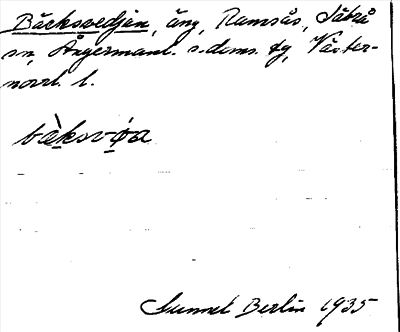 Bäcksvedjan, äng, Ramsås, Säbrå
sn, Ångermanl. s. doms. tg, Väster-
norrl. l.
bàksvǫa
Gunnel Berlin 1935